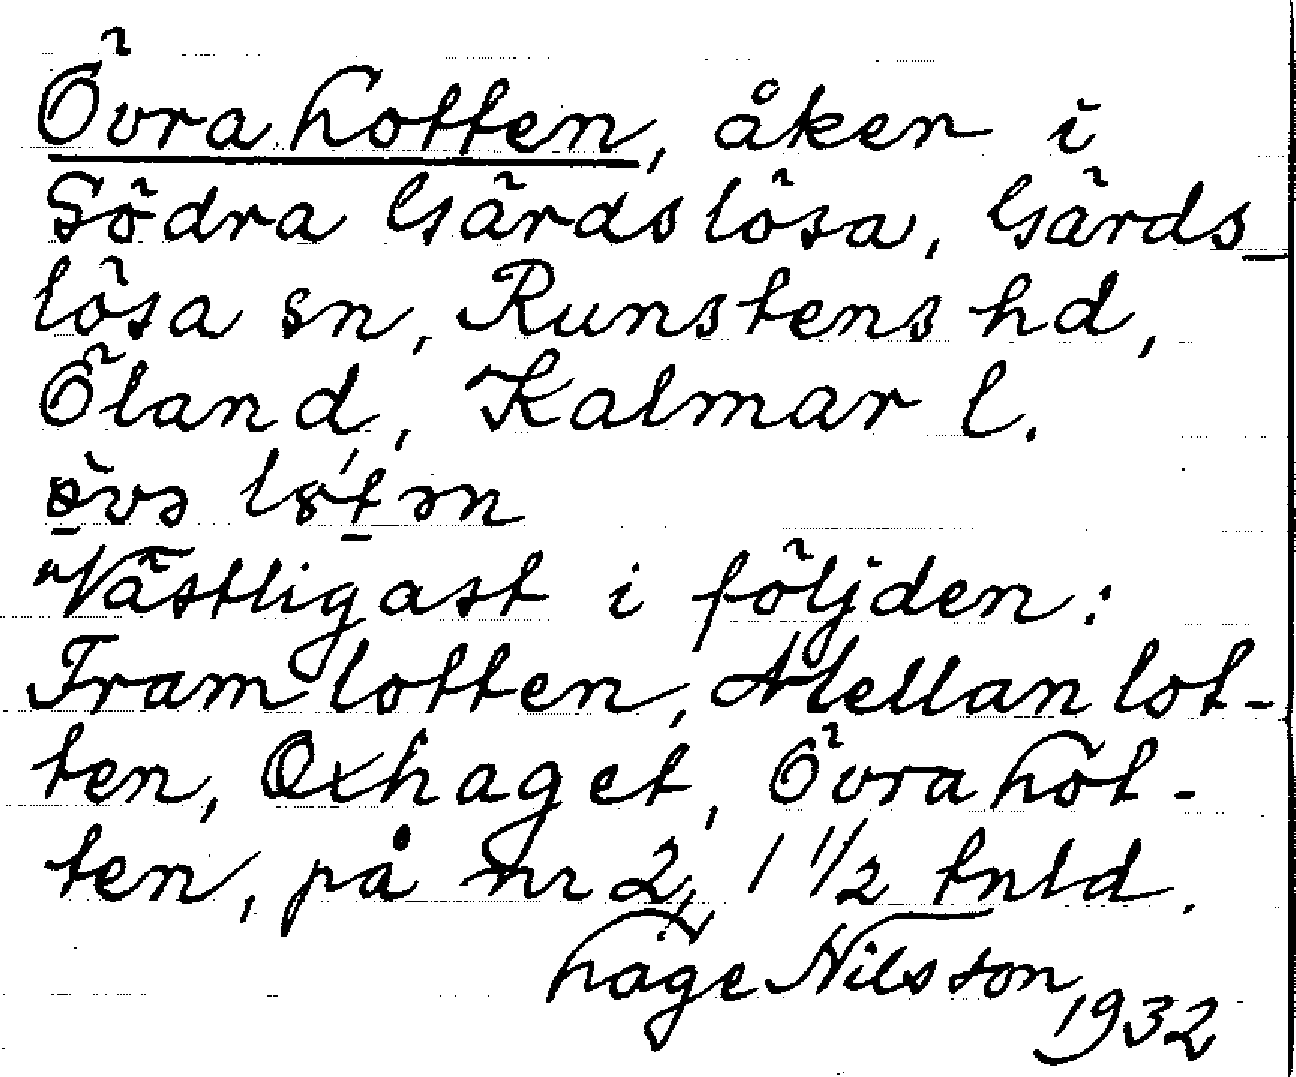 Övra Lotten, åker i
Södra Gärdslösa, Gärds_
lösa sn, Runstens hd,
Öland, Kalmar l.
"Västligast i följden:
Framlotten, Mellanlot-
ten, Oxhaget, Övra Lot-
ten, på nr 2, 1 1/2 tnld.
Håge Nilsson
1932